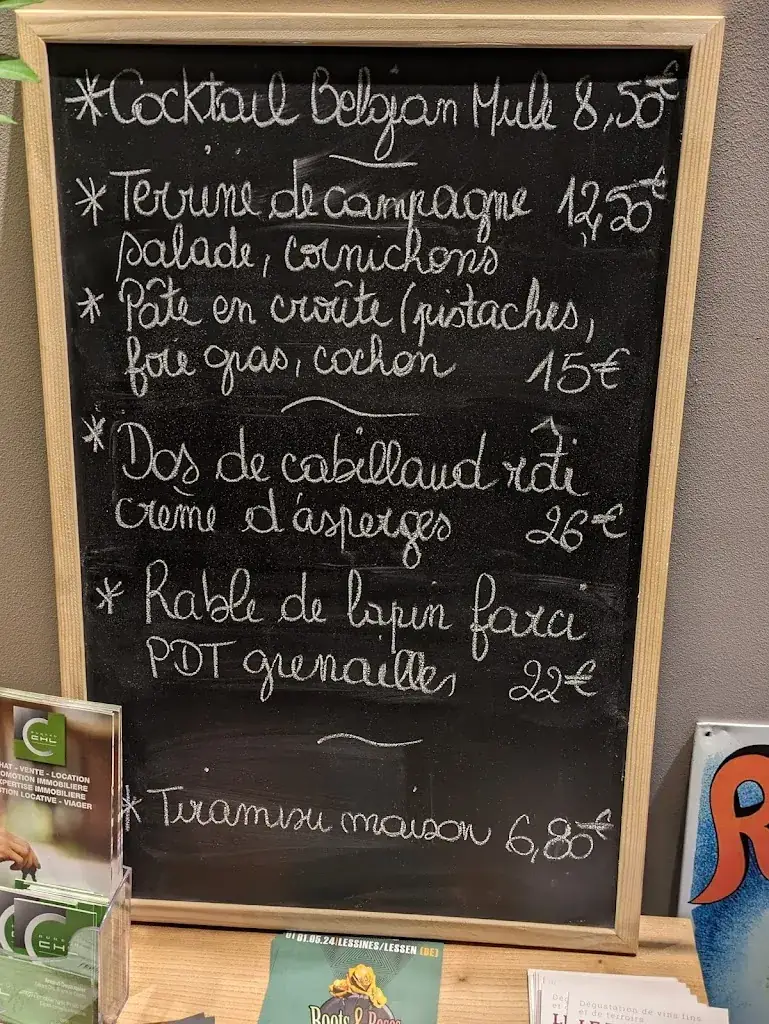 *Cocktail Belgian Mule 8,50€
* Terrine de campagne 12,50€
salade, cornichons
* Pâte en croûte (pistaches,
foie gras, cochon 15€
* Dos de cabillaud rôti
crème d'asperges 26€
* Rable de lapin farci
PDT grenailles 22€
* Tiramisu maison 6,80€
CHL
HAT - VENTE - LOCATION
OMOTION IMMOBILIERE
XPERTISE IMMOBILIERE
STION LOCATIVE - VIAGER
01.05.24/LESSINES/LESSEN (BE)
Roots & Roses
Dégustation de vins fins
et de terroirs
R